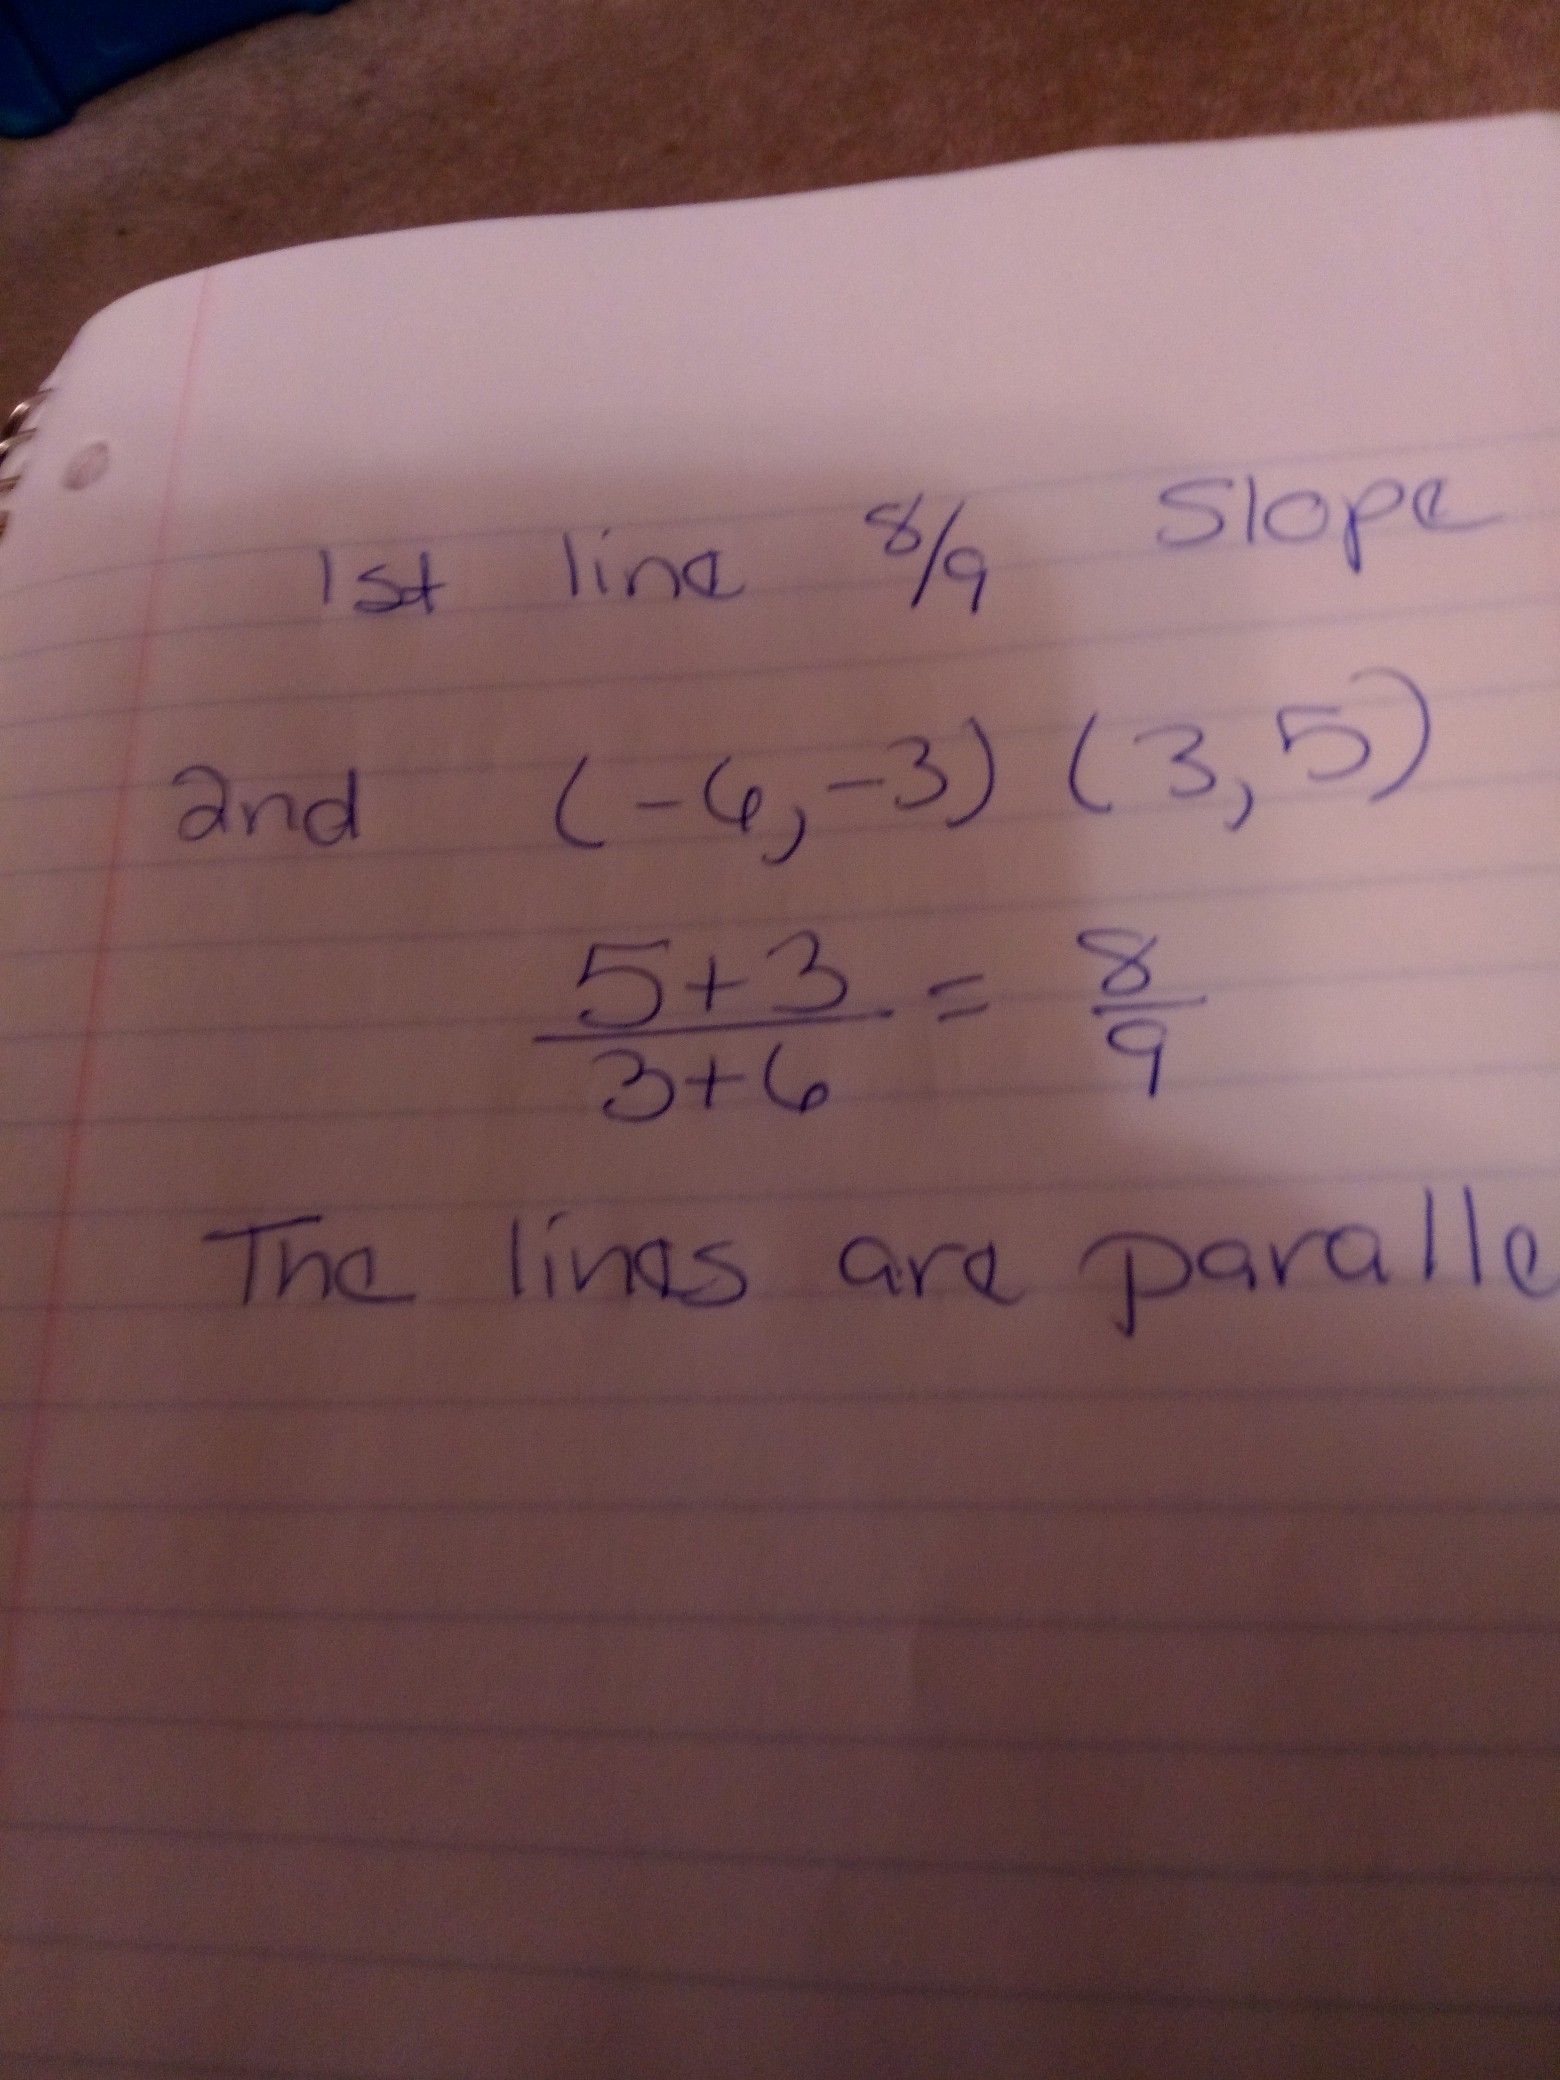 1st line 8/9 Slope
2nd (-6,-3) (3,5)
5+3
3+6 = 8/9
The lines are paralle